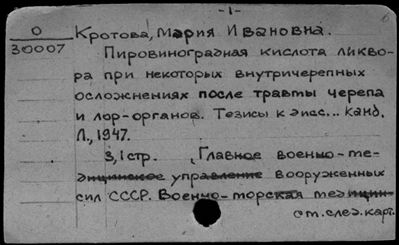 -1-
О
30007
Кротова, Мария Ивановна.
Пировиноградная кислота ликво-
ра при некоторых внутричерепных
осложнениях после травмы черепа
и лор-органов. Тезисы к дисс... канд.
Л., 1947.
3, 1 стр. Главное военно-ме-
дицинское управление Вооруженных
сил СССР. Военно-морская медицин-
см. след. карт.